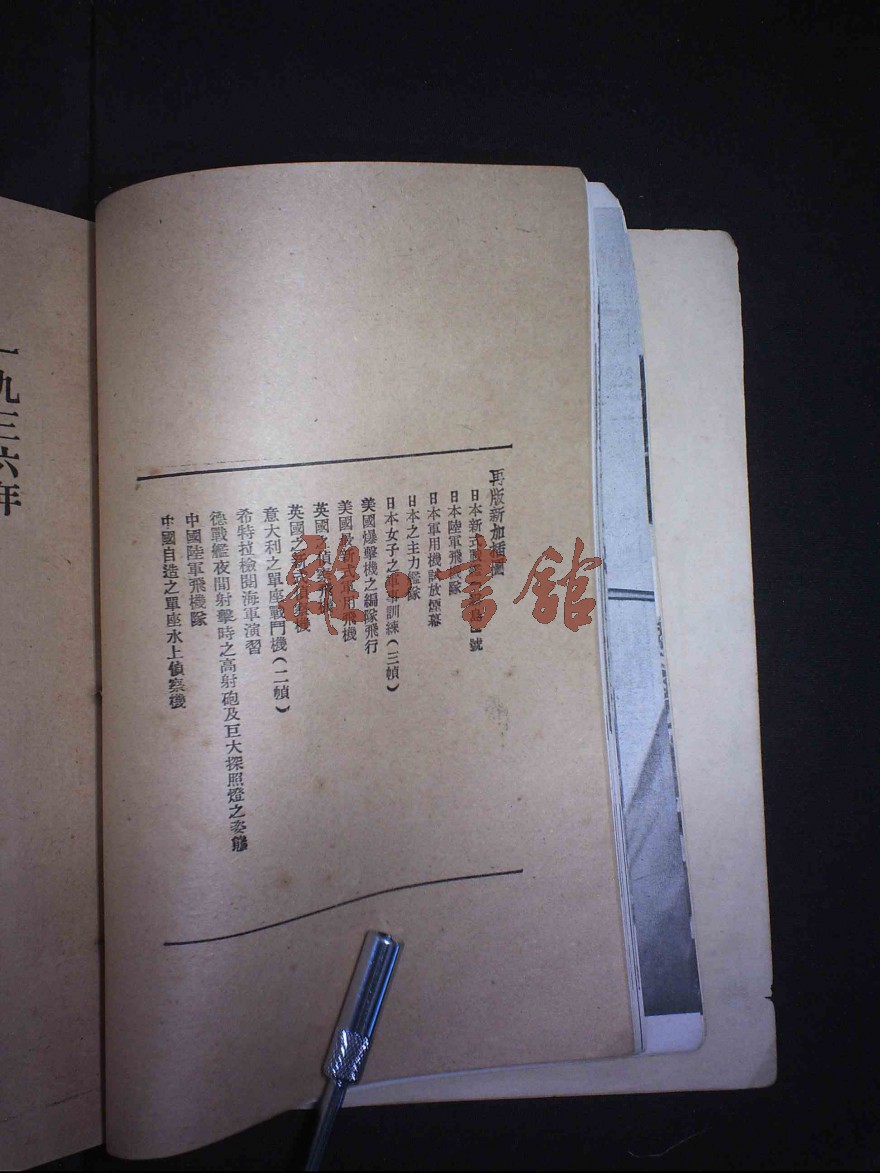 再版新加插圖
日本新式
日本陸軍飛機隊
日本軍用機試放煙幕
日本之主力艦隊
日本女子之軍事訓練(三幀)
美國爆擊機之編隊飛行
美國最新式軍用飛機
英國之偵察飛機
英國之新式偵察機
意大利之單座戰鬥機(二幀)
希特拉檢閱海軍演習
德戰艦夜間射擊時之高射砲及巨大探照燈之姿態
中國陸軍飛機隊
中國自造之單座水上偵察機
一九三六年